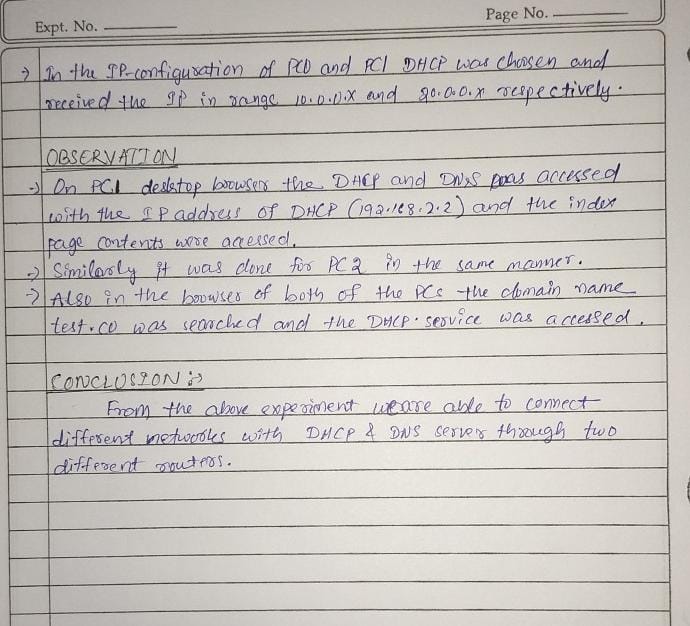 Page No.
Expt. No.
→ In the IP-configuration of PC0 and PC1 DHCP was choosen and
received the IP in range 10.0.0.x and 20.0.0.x respectively.
OBSERVATION
→ On PC1 desktop browser the DHCP and DNS was accessed
with the IP address of DHCP (192.168.2.2) and the index
page contents were accessed.
→ Similarly it was done for PC2 in the same manner.
→ Also in the browser of both of the PCs the domain name
test.co was searched and the DHCP service was accessed.
CONCLUSION :→
From the above experiment we are able to connect
different networks with DHCP & DNS server through two
different routers.